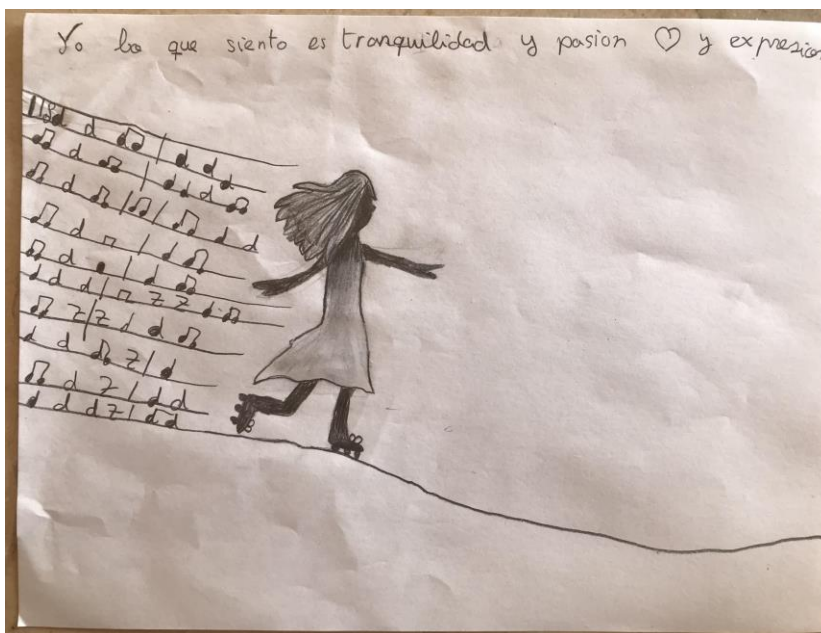 Yo lo que siento es tranquilidad y pasion ♡ y expresion